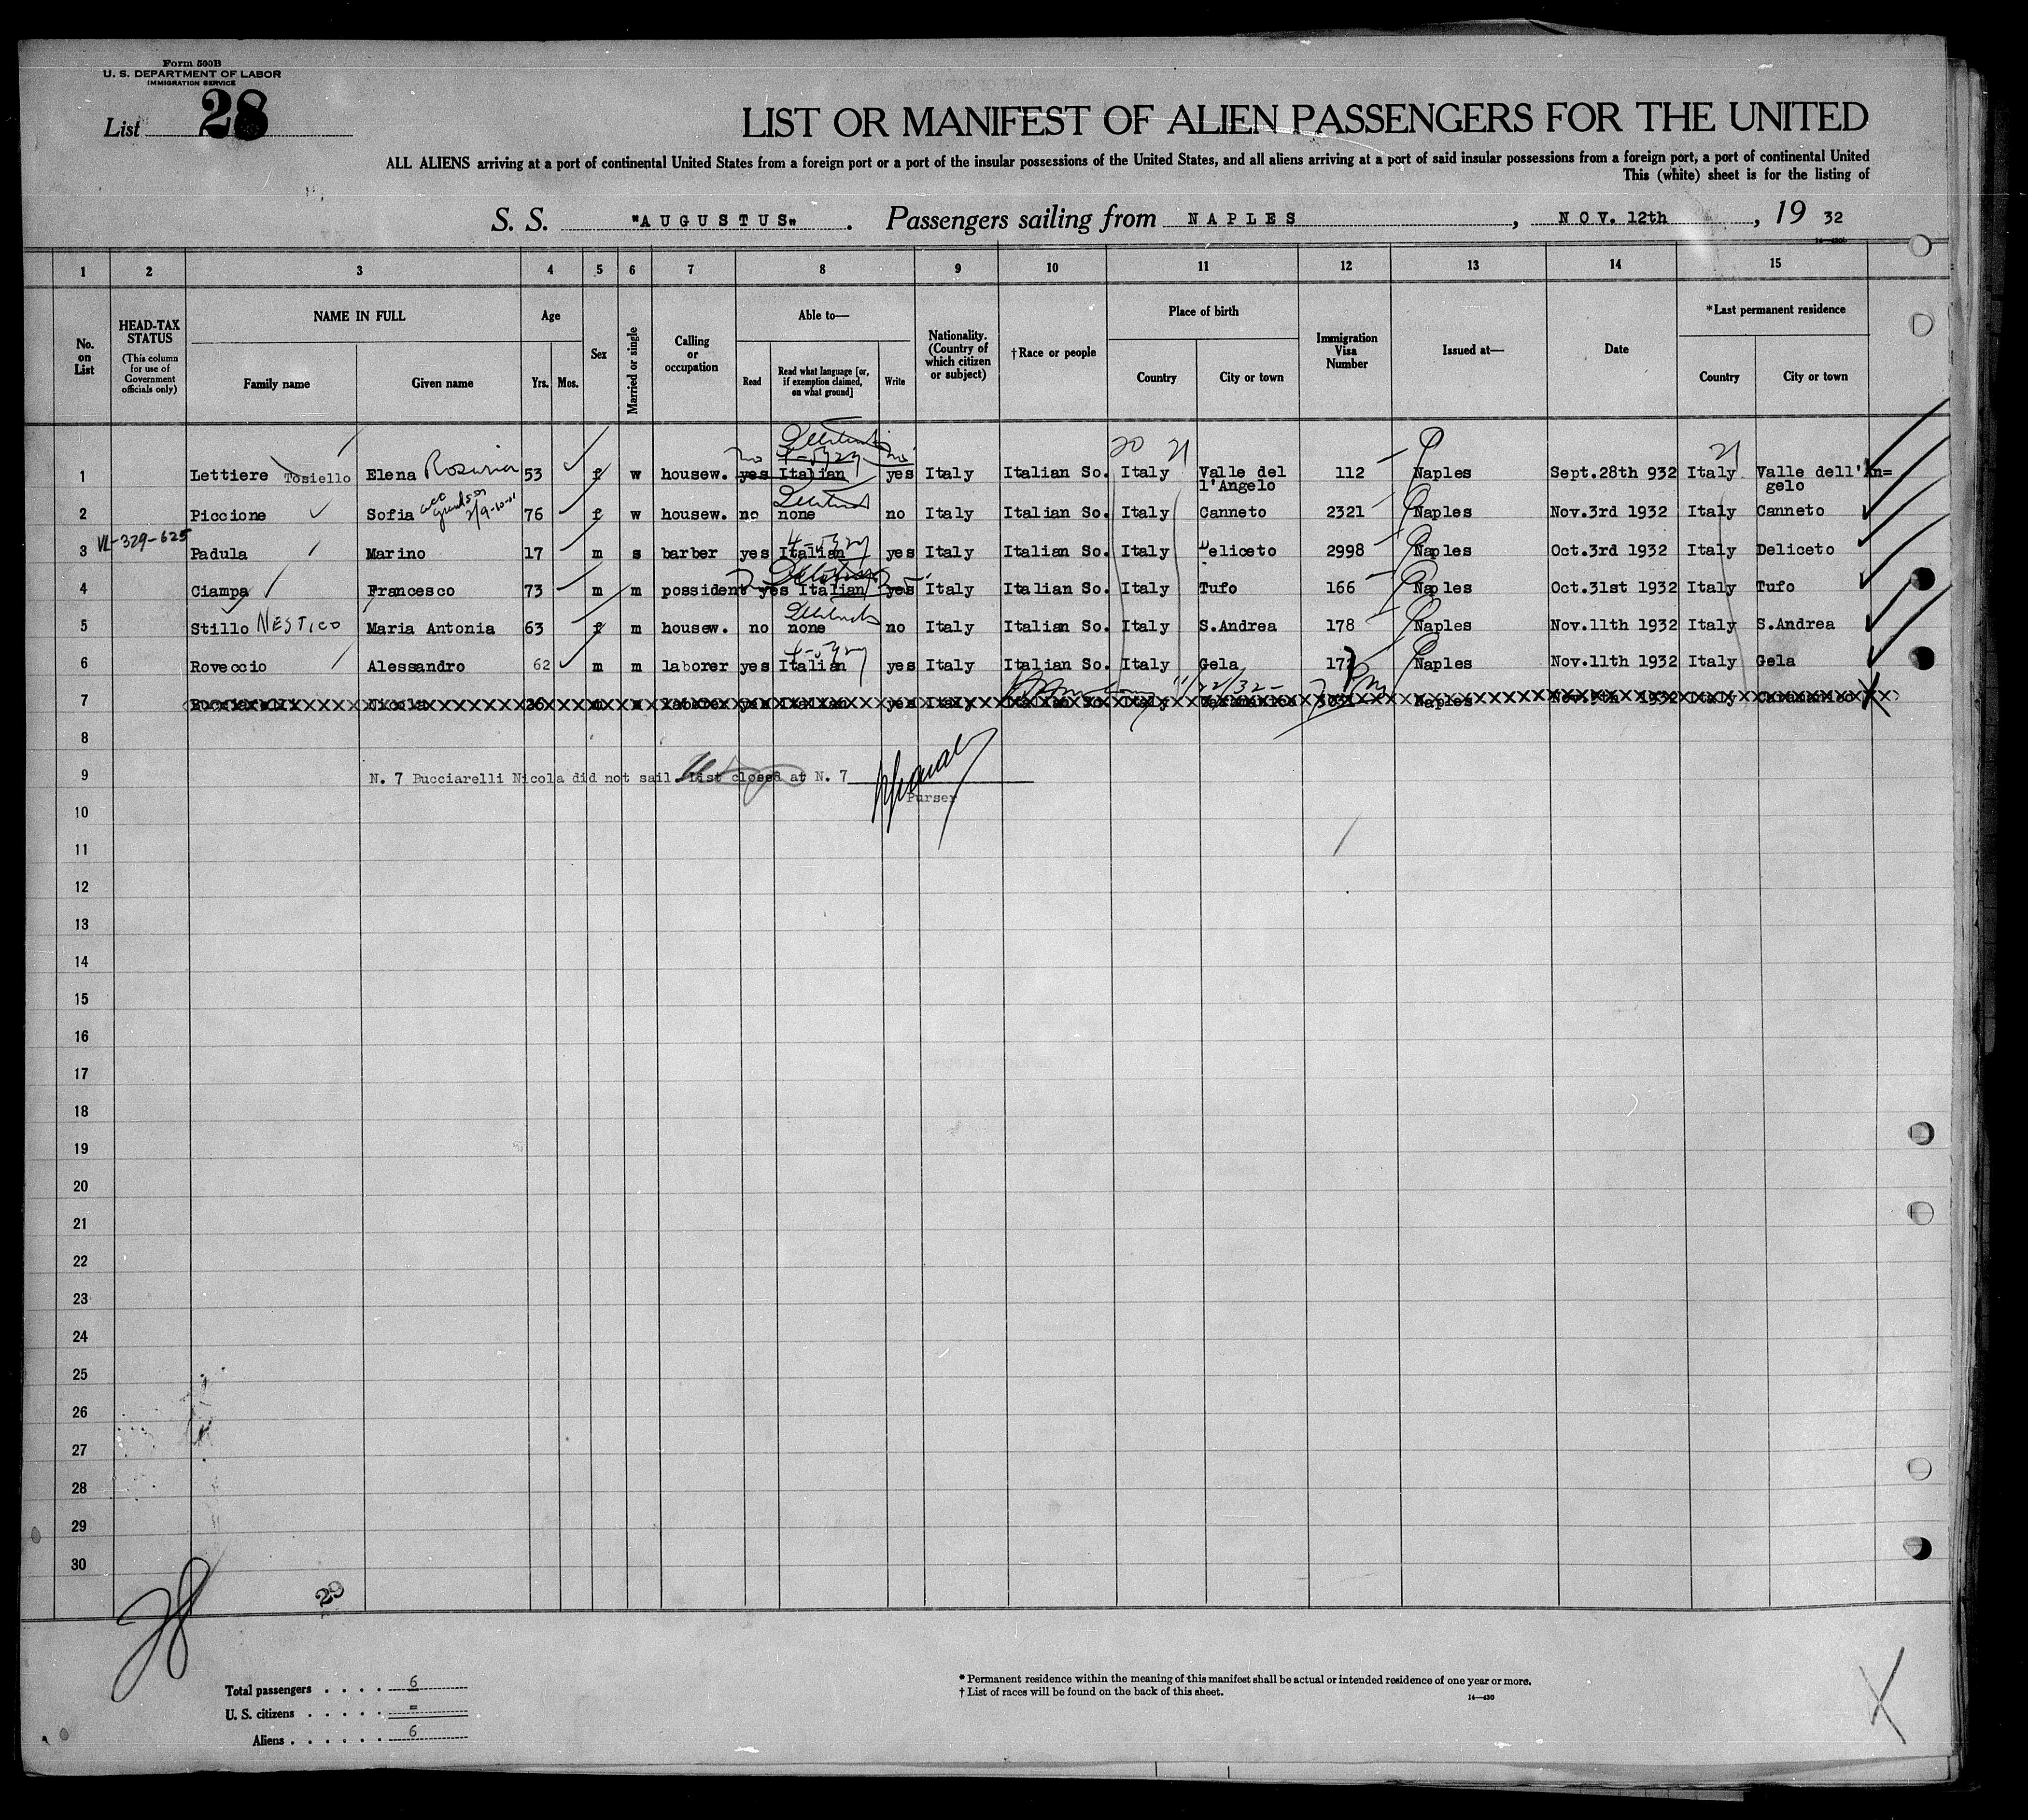 Form 500B
U. S. DEPARTMENT OF LABOR
IMMIGRATION SERVICE
List 28
LIST OR MANIFEST OF ALIEN PASSENGERS FOR THE UNITED
ALL ALIENS arriving at a port of continental United States from a foreign port or a port of the insular possessions of the United States, and all aliens arriving at a port of said insular possessions from a foreign port, a port of continental United
This (white) sheet is for the listing of
S. S. "AUGUSTUS" . Passengers sailing from NAPLES , NOV. 12th , 19 32
1 2 3 4 5 6 7 8 9 10 11 12 13 14 15
No. on List
HEAD-TAX STATUS
(This column for use of Government officials only)
NAME IN FULL
Family name Given name
Age
Yrs. Mos.
Sex
Married or single
Calling or occupation
Able to—
Read
Read what language [or, if exemption claimed, on what ground]
Write
Nationality. (Country of which citizen or subject)
†Race or people
Place of birth
Country City or town
Immigration Visa Number
Issued at—
Date
*Last permanent residence
Country City or town
20 21 21
no no
1 Lettiere Tosiello Elena Rosaria 53 f w housew. yes Italian yes Italy Italian So. Italy Valle del l'Angelo 112 Naples Sept.28th 932 Italy Valle dell'An= gelo
2 Piccione Sofia 76 f w housew. no none no Italy Italian So. Italy Canneto 2321 Naples Nov.3rd 1932 Italy Canneto
VL-329-625
3 Padula Marino 17 m s barber yes Italian yes Italy Italian So. Italy Deliceto 2998 Naples Oct.3rd 1932 Italy Deliceto
4 Ciampa Francesco 73 m m possident yes Italian yes Italy Italian So. Italy Tufo 166 Naples Oct.31st 1932 Italy Tufo
5 Stillo NESTICO Maria Antonia 63 f m housew. no none no Italy Italian So. Italy S.Andrea 178 Naples Nov.11th 1932 Italy S.Andrea
6 Roveccio Alessandro 62 m m laborer yes Italian yes Italy Italian So. Italy Gela 177 Naples Nov.11th 1932 Italy Gela
11/22/32
7 Bucciarelli Nicola 26 m laborer yes Italian yes Italy Italian So. Italy Caramanico Naples 1932 Italy Caramanico
8
9 N. 7 Bucciarelli Nicola did not sail List closed at N. 7
Purser
10
11
12
13
14
15
16
17
18
19
20
21
22
23
24
25
26
27
28
29
30
28
29
Total passengers . . . . 6
U. S. citizens . . . . . =
Aliens . . . . . . 6
* Permanent residence within the meaning of this manifest shall be actual or intended residence of one year or more.
† List of races will be found on the back of this sheet.
14—430